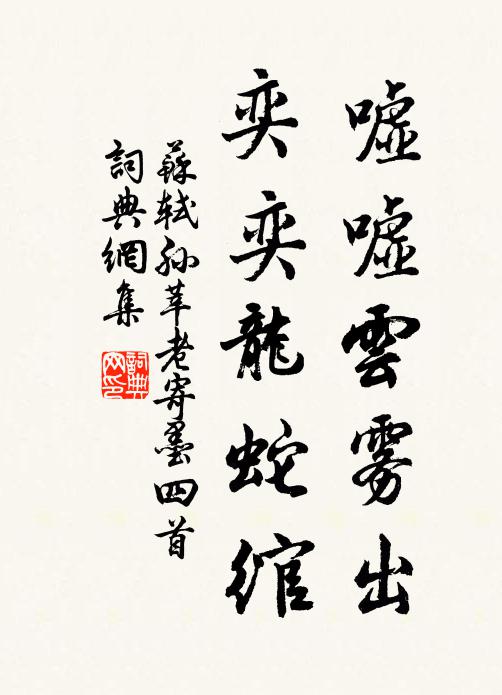 噓噓雲霧出
奕奕龍蛇綰
蘇軾孫莘老寄墨四首
詞典網集
詞典網印